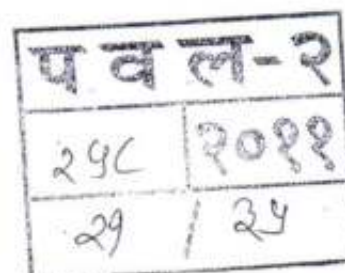 प व ल-२
२५८ २०११
२१ / ३५